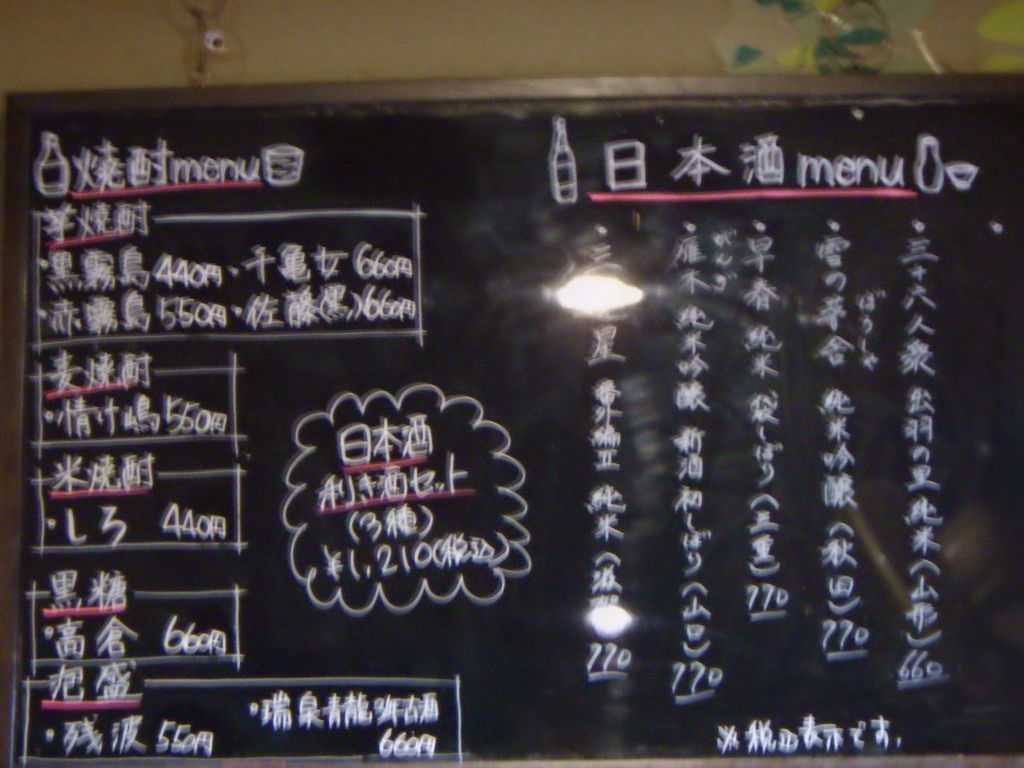 焼酎menu
芋焼酎
・黒霧島 440円 ・千亀女 660円
・赤霧島 550円 ・佐藤(黒) 660円
麦焼酎
・情け嶋 550円
米焼酎
・しろ 440円
黒糖
・高倉 660円
泡盛
・残波 550円
・瑞泉青龍3年古酒
660円
日本酒
利き酒セット
(3種)
¥1,210(税込)
日本酒menu
・三十六人衆 出羽の里 純米(山形) 660
・雪の茅舎 純米吟醸(秋田) 770
ぼうしゃ
・早春 純米 袋しぼり(三重) 770
・雁木 純米吟醸 新酒初しぼり(山口) 770
がんぎ
・三 星 番外編II 純米 770
※税込表示です。